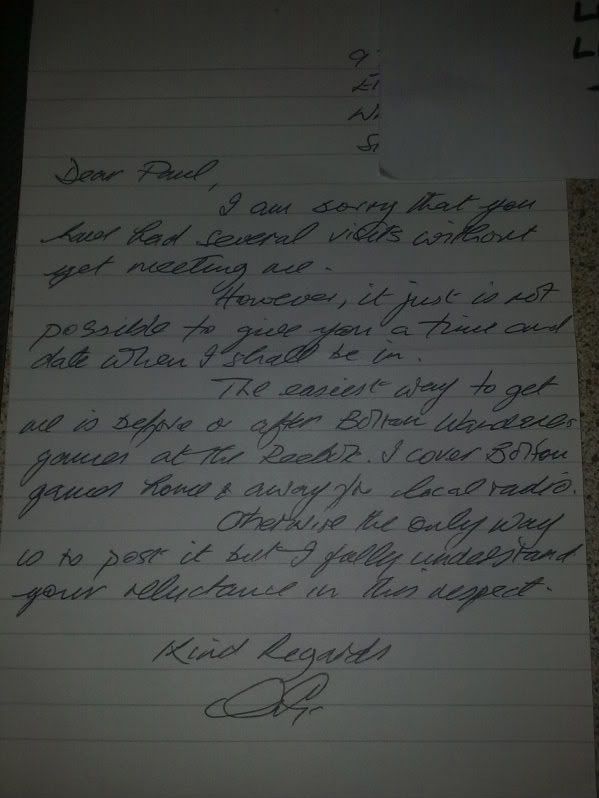 Dear Paul,
I am sorry that you
have had several visits without
yet meeting me.
However, it just is not
possible to give you a time and
date when I shall be in.
The easiest way to get
me is before or after Bolton Wanderers
games at the Reebok. I cover Bolton
games home & away for local radio.
Otherwise the only way
is to post it but I fully understand
your reluctance in this respect.
Kind Regards